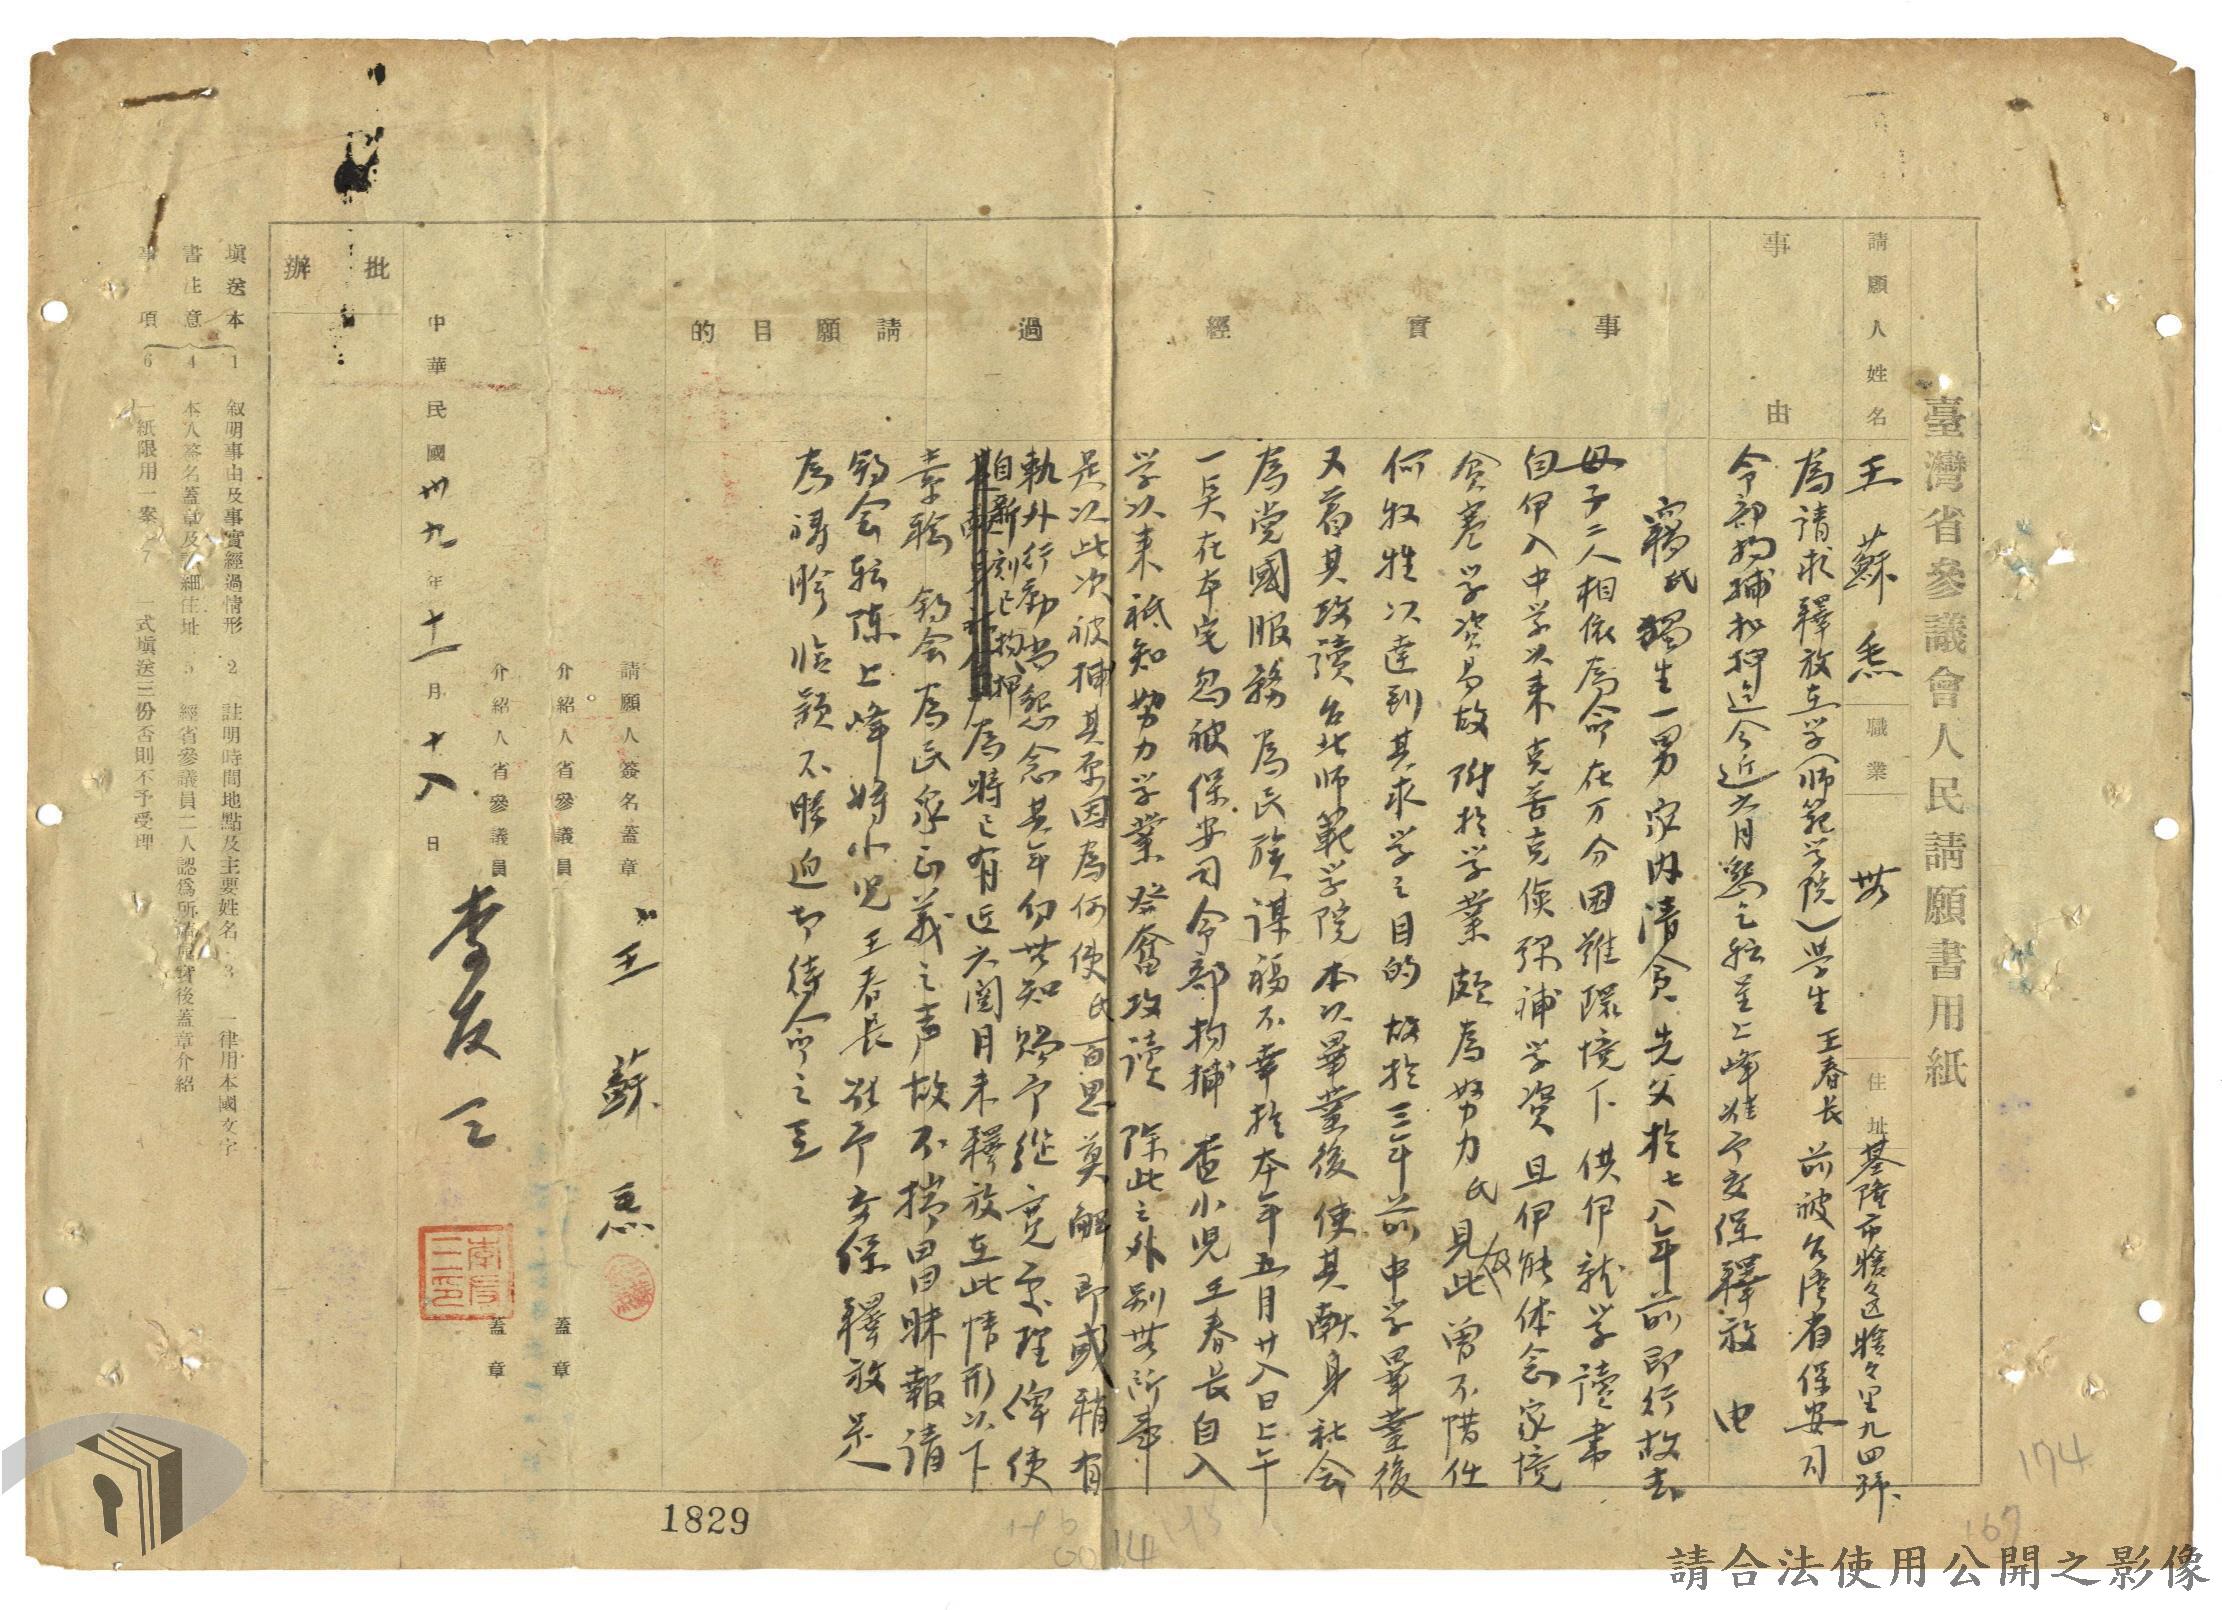 臺灣省參議會人民請願書用紙
請願人姓名 王蘇 職業 無 住址 基隆市 區 里九四號
事由
為請求釋放在学(师範学院)學生王春長前被台湾省保安司
令部拘捕扣押迄今近六月懇乞轉呈上峰准予交保釋放 由
事實經過
竊氏獨生一男家內清貧先父於七八年前即行故去
母子二人相依為命在万分困難環境下供伊就学讀書
自伊入中学以来克苦克儉弥補学資且伊能体念家境
貧寒学資易故 附於学業頗為努力氏見及此曾不惜任
何牧牲以達到其求学之目的故於三年前中学畢業後
又着其攻讀台北师範学院本以畢業後使其献身社会
為党國服務為民族謀福不幸於本年五月廿八日上午
一英在本宅忽被保安司令部拘捕 查小児王春長自入
学以来祗知努力学業發奮攻读除此之外别無所事
是以此次被捕其原因為何使氏百思莫解即或稍有
軌外行動尚懇念其年幼無知賜予從寬處理俾使
自新刻已拘押
為時已有近六閱月未釋放在此情形以下
請願目的
幸聆 鈞会為民眾正義之声故不揣冒昧報請
鈞会転陳上峰將小児王春長 予交保釋放是
為禱盼臨穎不勝迫切待命之至
請願人簽名蓋章 王蘇
介紹人省參議員 蓋章
介紹人省參議員 李友三 蓋章
李友三印
中華民國卅九年十一月十八日
批辦
填送本書注意事項
1 叙明事由及事實經過情形 2 註明時間地點及主要姓名 3 一律用本國文字
4 本人簽名蓋章及詳細住址 5 經省參議員二人認爲所請屬實後蓋章介紹
6 一紙限用一案 7 一式塡送三份否則不予受理
1829
174
167
請合法使用公開之影像